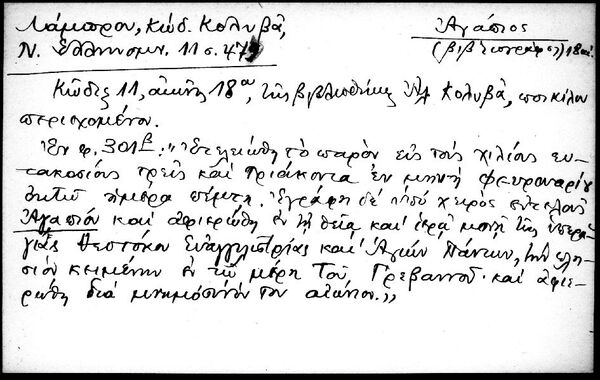 Λάμπρου, Κώδ. Κολυβᾶ,
Ν. Ἑλληνομν. 11 σ. 47
Ἀγάπιος
(βιβλιογράφος) 18 αἰ.
Κῶδιξ 11, αἰῶνος 18α, τῆς βιβλιοθήκης Κολυβᾶ, ποικίλου
περιεχομένου.
Ἐν φ. 301β: "Ἐτελειώθη τὸ παρὸν εἰς τοὺς χιλίους ἑπ-
τακοσίους τρεῖς καὶ τριάκοντα ἐν μηνὶ φευρουαρίῳ
ἡμέρα πέμπτη. Ἐγράφη δὲ χειρὸς εὐτελοῦς
Ἀγαπίου καὶ ἀφιερώθη ἐν τῇ θείᾳ καὶ ἱερᾷ μονῇ τῆς ὑπερα-
γίας Θεοτόκου Εὐαγγελιστρίας καὶ Ἁγίων Πάντων, τὴν πλη-
σίον κειμένην ἐν τῷ μέρη τοῦ Γρεβαινοῦ καὶ ἀφιε-
ρώθη διὰ μνημόσυνόν του αἰώνιον."